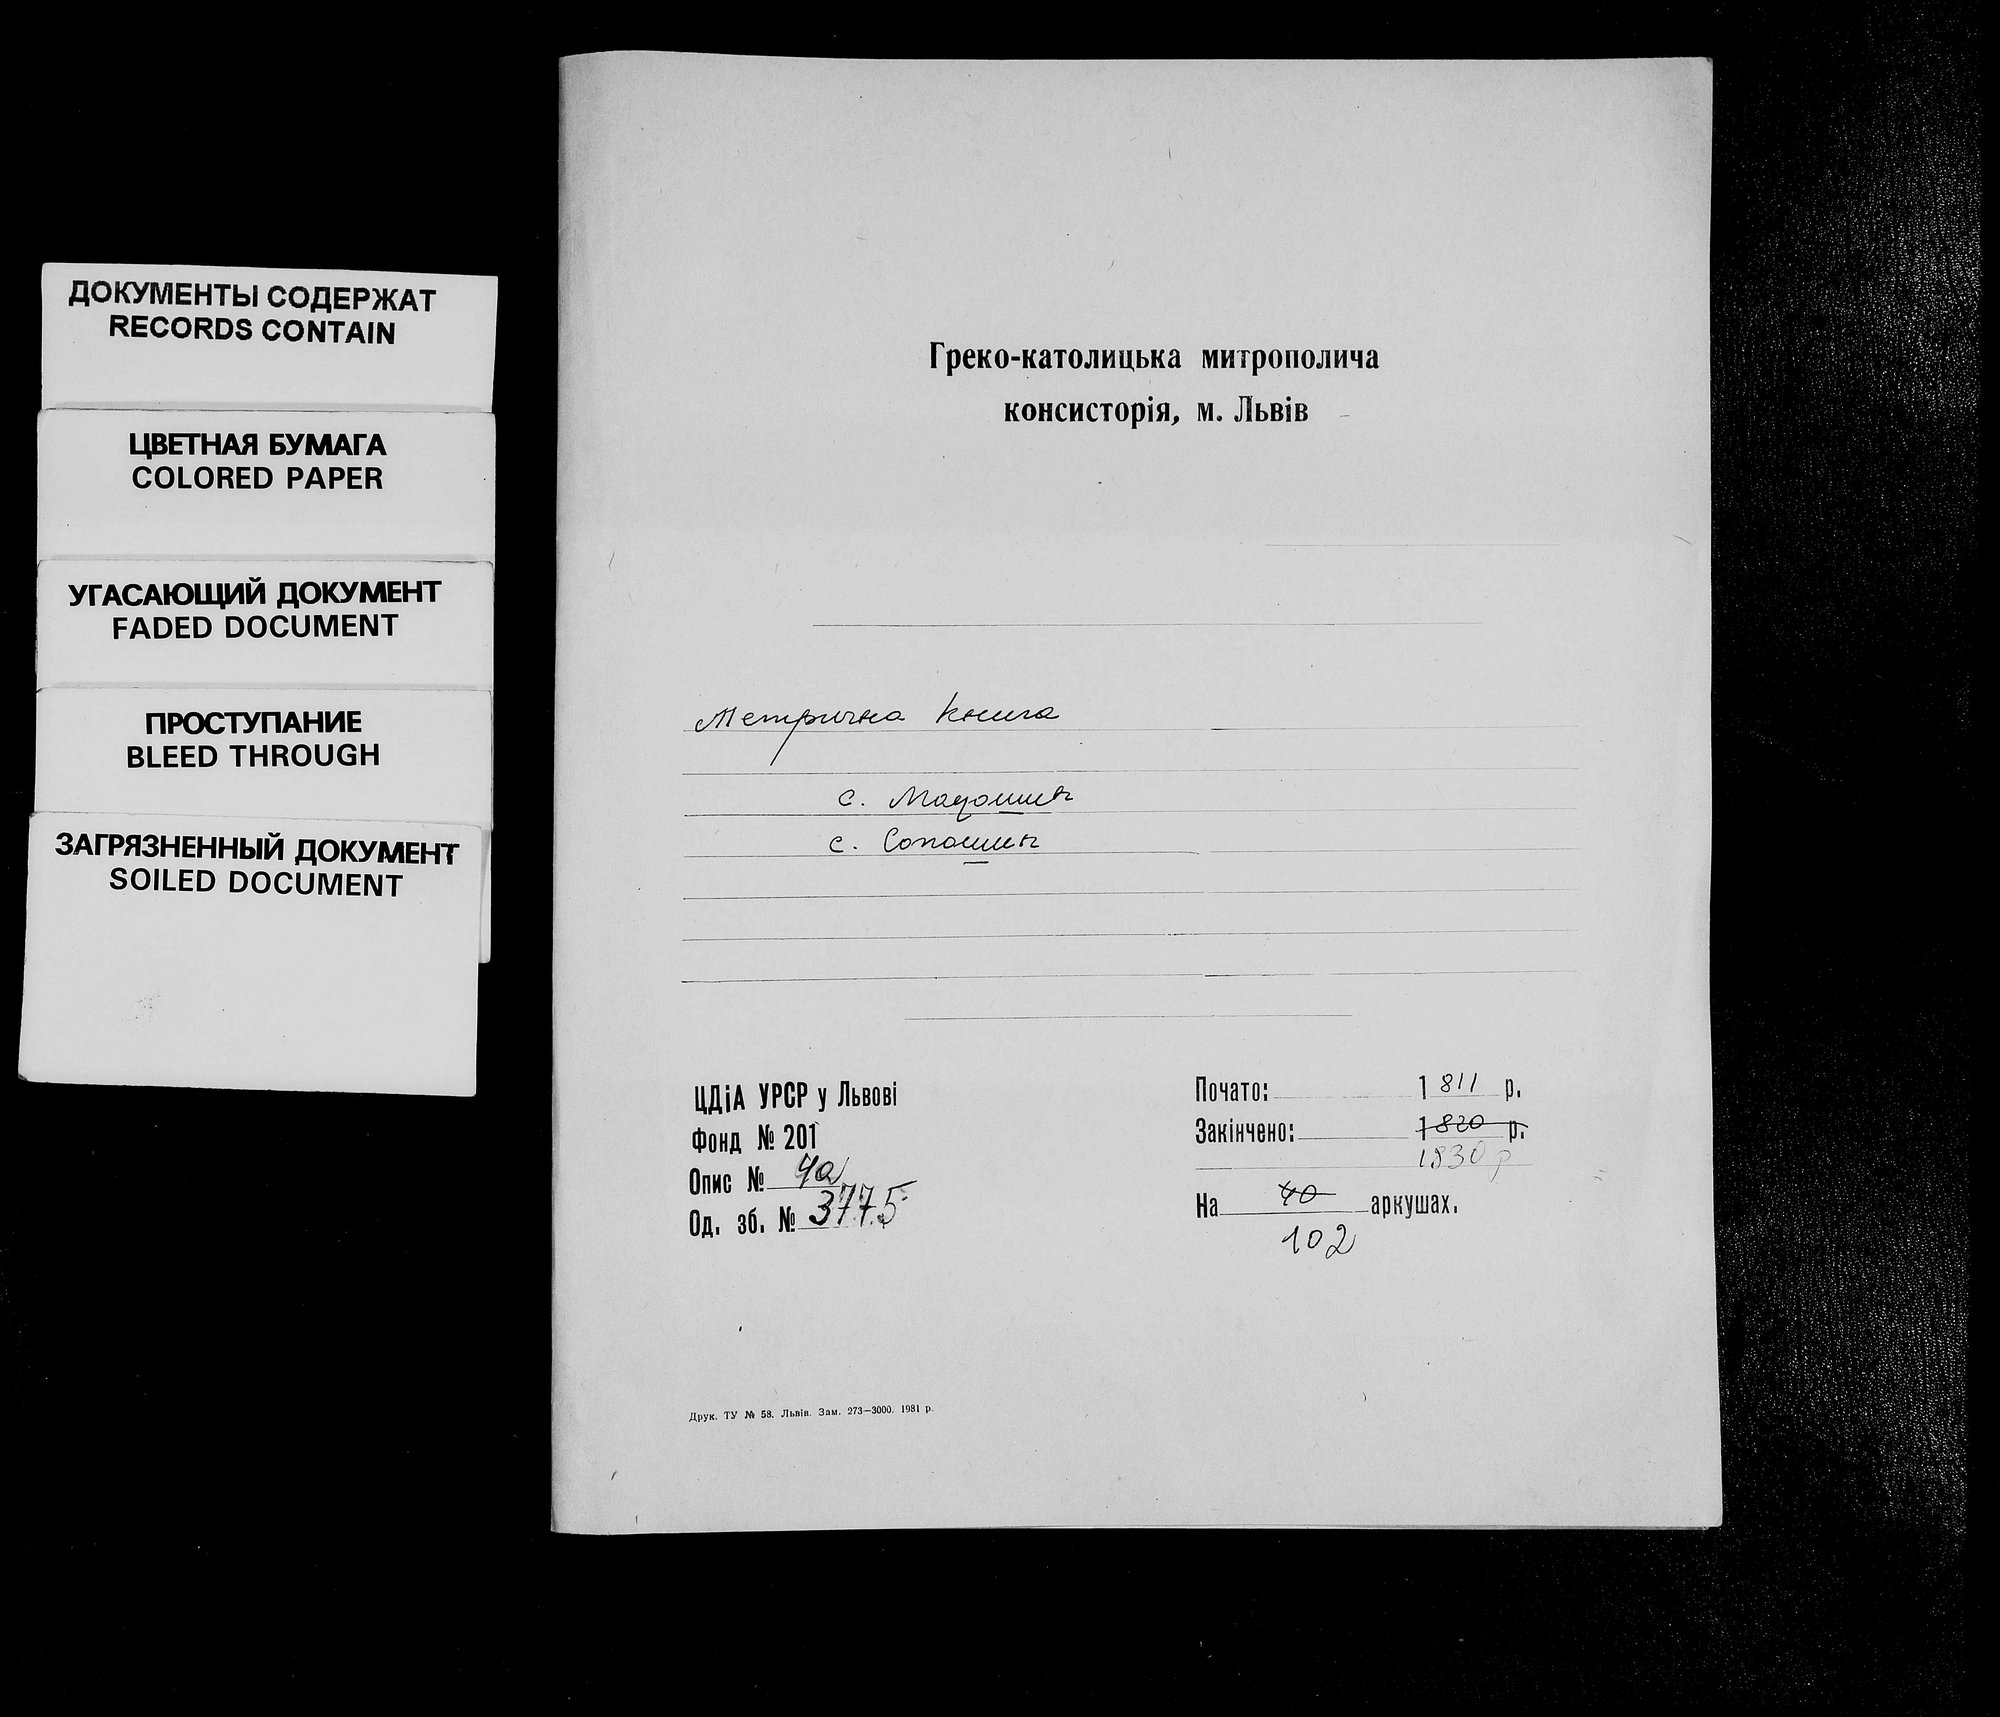 ДОКУМЕНТЫ СОДЕРЖАТ
RECORDS CONTAIN
ЦВЕТНАЯ БУМАГА
COLORED PAPER
УГАСАЮЩИЙ ДОКУМЕНТ
FADED DOCUMENT
ПРОСТУПАНИЕ
BLEED THROUGH
ЗАГРЯЗНЕННЫЙ ДОКУМЕНТ
SOILED DOCUMENT
Греко-католицька митрополича
консисторія, м. Львів
Метрична книга
с. Мацошин
с. Сопошин
ЦДіА УРСР у Львові
Фонд № 201
Опис № 4а
Од. зб. № 3775
Почато: 1811 р.
Закінчено: 1820 р.
1830 р
На 40 аркушах.
102
Друк. ТУ № 58. Львів. Зам. 273—3000. 1981 р.